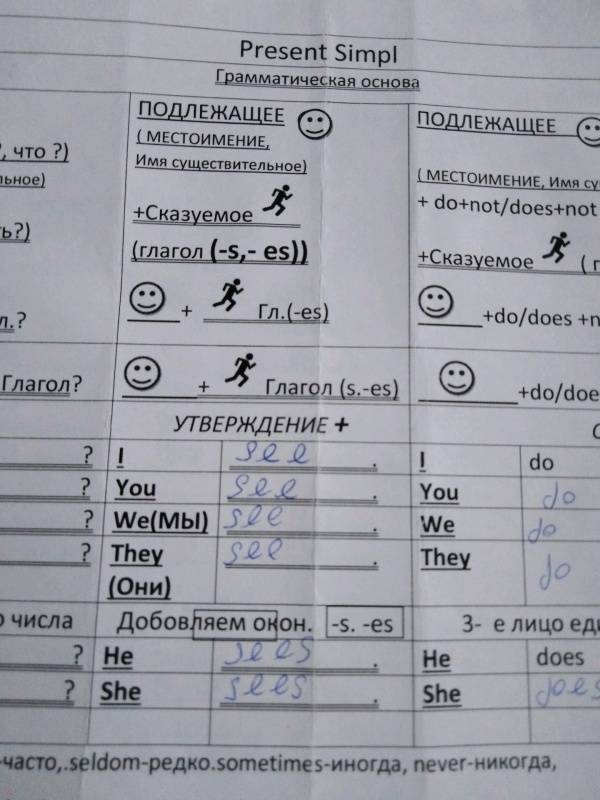 Present Simpl
Грамматическая основа
, что ?)
ьное)
ь?)
л.?
Глагол?
ПОДЛЕЖАЩЕЕ
( МЕСТОИМЕНИЕ,
Имя существительное)
+Сказуемое
(глагол (-s,- es))
+ Гл.(-es)
+ Глагол (s.-es)
ПОДЛЕЖАЩЕЕ
( МЕСТОИМЕНИЕ, Имя су
+ do+not/does+not
+Сказуемое ( г
+do/does +n
+do/doe
УТВЕРЖДЕНИЕ + О
? I see . I do
? You see . You do
? We(МЫ) see . We do
? They see . They do
(Они)
о числа Добовляем окон. -s. -es 3- е лицо еди
? He sees . He does
? She sees . She does
-часто,.seldom-редко.sometimes-иногда, never-никогда,